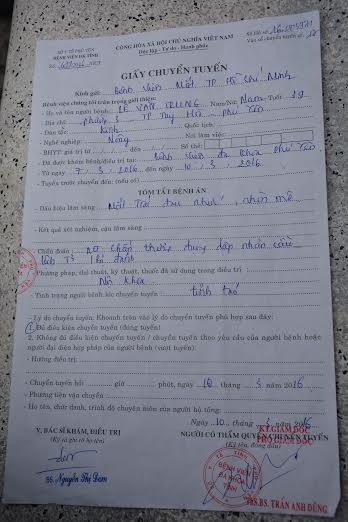 SỞ Y TẾ PHÚ YÊN
BỆNH VIỆN ĐA TỈNH
CỘNG HÒA XÃ HỘI CHỦ NGHĨA VIỆT NAM
Độc lập - Tự do - Hạnh phúc
Số Hồ sơ:
Vào sổ chuyển tuyến số:
GIẤY CHUYỂN TUYẾN
Kính gửi: Bệnh viện Mắt TP Hồ Chí Minh
Bệnh viện chúng tôi trân trọng giới thiệu:
- Họ và tên người bệnh: LÊ VĂN Nam/Nữ: Nam Tuổi:
- Địa chỉ: phường 5 TP Tuy Hòa phú yên
- Dân tộc: kinh Quốc tịch:
- Nghề nghiệp: Nông Nơi làm việc:
- BHYT: giá trị từ / / đến / / Số thẻ:
- Đã được khám bệnh/điều trị tại: Bệnh viện đa khoa phú yên
- Từ ngày 7 / 3 / 2016 đến ngày 10 / 3 / 2016
- Tuyến trước chuyển đến: (nếu có)
TÓM TẮT BỆNH ÁN
- Dấu hiệu lâm sàng Mắt Trái đau nhức, nhìn mờ
- Kết quả xét nghiệm, cận lâm sàng
- Chẩn đoán: chấn thương đụng dập nhãn cầu
- Phương pháp, thủ thuật, kỹ thuật, thuốc đã sử dụng trong điều trị
Nội khoa
- Tình trạng người bệnh lúc chuyển tuyến: tỉnh táo
- Lý do chuyển tuyến: Khoanh tròn vào lý do chuyển tuyến phù hợp sau đây:
1. Đủ điều kiện chuyển tuyến (đúng tuyến)
2. Không đủ điều kiện chuyển tuyến / chuyển tuyến theo yêu cầu của người bệnh hoặc
người đại diện hợp pháp của người bệnh (vượt tuyến):
- Hướng điều trị:
- Chuyển tuyến hồi giờ phút, ngày 10 tháng 3 năm 2016
- Phương tiện vận chuyển
- Họ tên, chức danh, trình độ chuyên môn của người hộ tống:
Ngày 10 tháng 3 năm 2016
Y, BÁC SĨ KHÁM, ĐIỀU TRỊ
(Ký và ghi rõ họ tên)
NGƯỜI CÓ THẨM QUYỀN CHUYỂN TUYẾN
KT.GIÁM ĐỐC
PHÓ GIÁM ĐỐC
BỆNH VIỆN
ĐA KHOA
TỈNH
BS. Nguyễn Thị Đam
ThS.BS. TRẦN ANH DŨNG